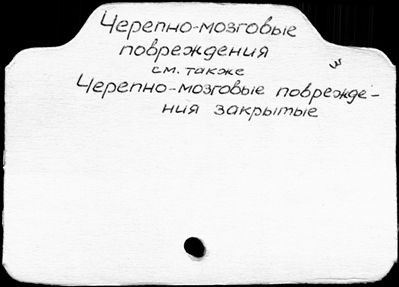 Черепно-мозговые
повреждения
см. также
Черепно-мозговые поврежде-
ния закрытые